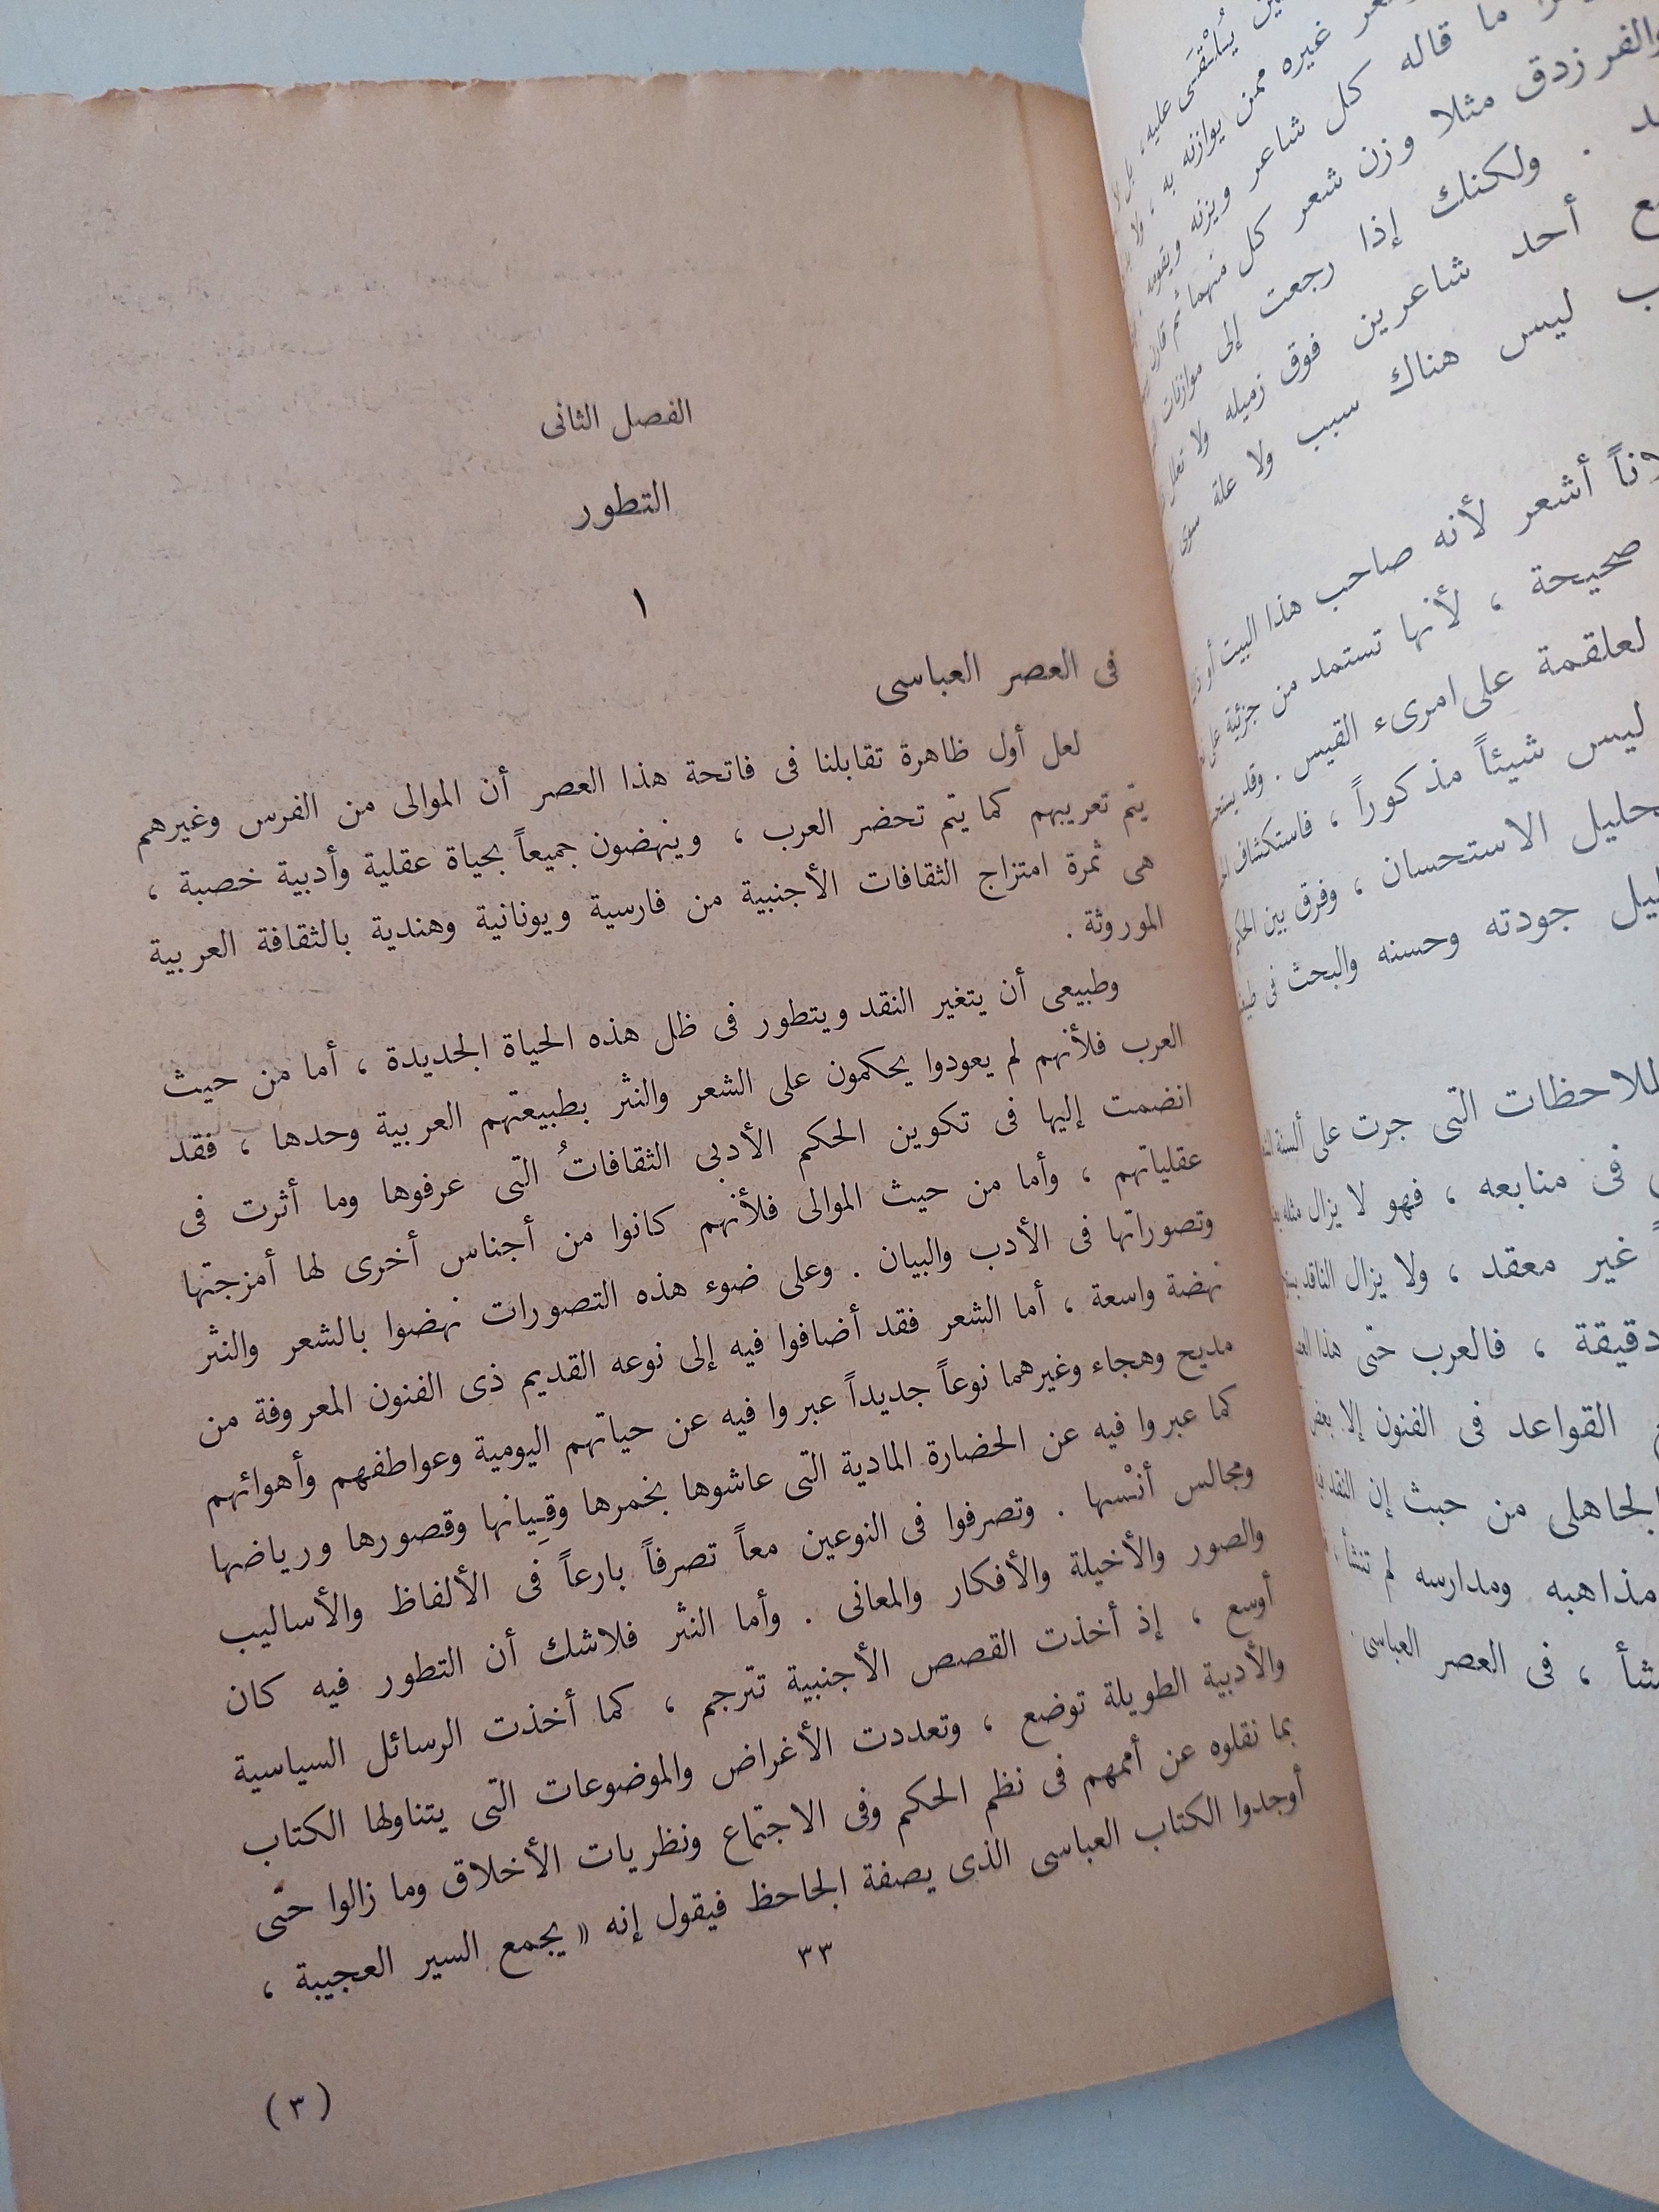 يُلْتقَى عليه ، بل لا
غيره ممن يوازنه به ، ولا
ما قاله كل شاعر ويزنه ويقومه
والفرزدق مثلا وزن شعر كل منهما ثم قارن
ولكنك إذا رجعت إلى موازنات
أحد شاعرين فوق زميله ولا تعليل
ليس هناك سبب ولا علة سوى
أشعر لأنه صاحب هذا البيت أو
صحيحة ، لأنها تستمد من جزئية على
لعلقمة على امرىء القيس . وقد
ليس شيئاً مذكوراً ، فاستكشاف
الاستحسان ، وفرق بين
جودته وحسنه والبحث فى
الملاحظات التى جرت على ألسنة
فى منابعه ، فهو لا يزال مثله
غير معقد ، ولا يزال الناقد
دقيقة ، فالعرب حتى هذا
القواعد فى الفنون إلا بعض
الجاهلى من حيث إن النقد
مذاهبه ومدارسه لم تنشأ
، فى العصر العباسى .
الفصل الثانى
التطور
١
فى العصر العباسى
لعل أول ظاهرة تقابلنا فى فاتحة هذا العصر أن الموالى من الفرس وغيرهم
يتم تعريبهم كما يتم تحضر العرب ، وينهضون جميعاً بحياة عقلية وأدبية خصبة ،
هى ثمرة امتزاج الثقافات الأجنبية من فارسية ويونانية وهندية بالثقافة العربية
الموروثة .
وطبيعى أن يتغير النقد ويتطور فى ظل هذه الحياة الجديدة ، أما من حيث
العرب فلأنهم لم يعودوا يحكمون على الشعر والنثر بطبيعتهم العربية وحدها ، فقد
انضمت إليها فى تكوين الحكم الأدبى الثقافاتُ التى عرفوها وما أثرت فى
عقلياتهم ، وأما من حيث الموالى فلأنهم كانوا من أجناس أخرى لها أمزجتها
وتصوراتها فى الأدب والبيان . وعلى ضوء هذه التصورات نهضوا بالشعر والنثر
نهضة واسعة ، أما الشعر فقد أضافوا فيه إلى نوعه القديم ذى الفنون المعروفة من
مديح وهجاء وغيرهما نوعاً جديداً عبروا فيه عن حياتهم اليومية وعواطفهم وأهوائهم
كما عبروا فيه عن الحضارة المادية التى عاشوها بخمرها وقِيانها وقصورها ورياضها
ومجالس أنْسها . وتصرفوا فى النوعين معاً تصرفاً بارعاً فى الألفاظ والأساليب
والصور والأخيلة والأفكار والمعانى . وأما النثر فلاشك أن التطور فيه كان
أوسع ، إذ أخذت القصص الأجنبية تترجم ، كما أخذت الرسائل السياسية
والأدبية الطويلة توضع ، وتعددت الأغراض والموضوعات التى يتناولها الكتاب
بما نقلوه عن أممهم فى نظم الحكم وفى الاجتماع ونظريات الأخلاق وما زالوا حتى
أوجدوا الكتاب العباسى الذى يصفة الجاحظ فيقول إنه « يجمع السير العجيبة ،
٣٣
( ٣ )